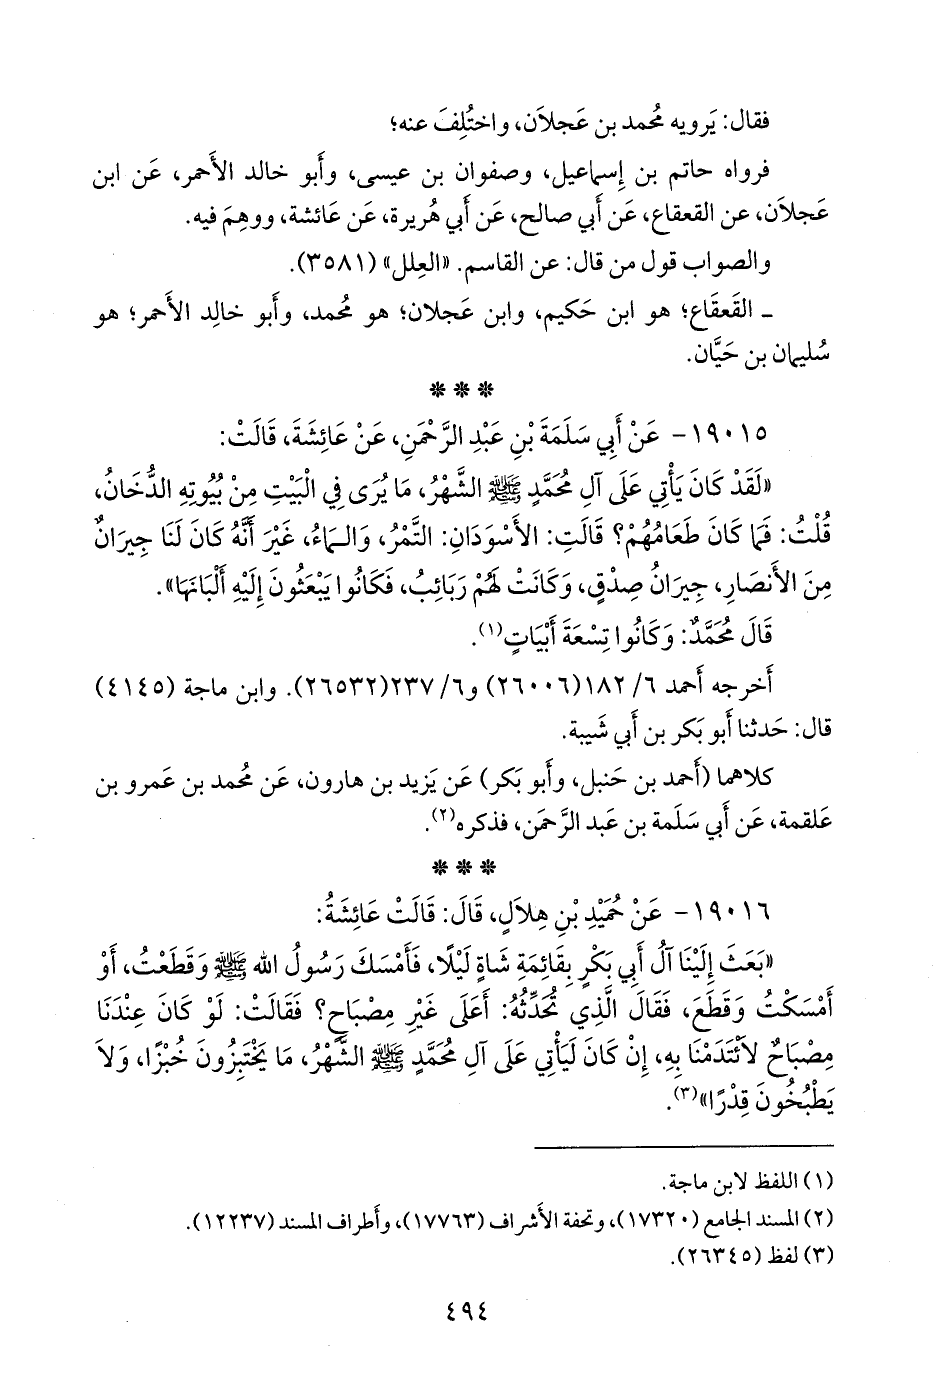 فقال: يَرويه مُحمد بن عَجلاَن، واختُلِفَ عنه؛
فرواه حاتم بن إِسماعيل، وصفوان بن عيسى، وأَبو خالد الأَحمر، عَن ابن
عَجلاَن، عن القعقاع، عَن أَبي صالح، عَن أَبي هُريرة، عَن عَائشة، ووهِمَ فيه.
والصواب قول من قال: عن القاسم. «العِلل» (٣٥٨١).
ـ القَعقَاع؛ هو ابن حَكيم، وابن عَجلان؛ هو مُحمد، وأَبو خالِد الأَحمر؛ هو
سُليمان بن حَيَّان.
* * *
١٩٠١٥- عَنْ أَبِي سَلَمَةَ بْنِ عَبْدِ الرَّحْمَنِ، عَنْ عَائِشَةَ، قَالَتْ:
«لَقَدْ كَانَ يَأْتِي عَلَى آلِ مُحَمَّدٍ ﷺ الشَّهْرُ، مَا يُرَى فِي الْبَيْتِ مِنْ بُيُوتِهِ الدُّخَانُ،
قُلْتُ: فَمَا كَانَ طَعَامُهُمْ؟ قَالَتِ: الأَسْوَدَانِ: التَّمْرُ، وَالـمَاءُ، غَيْرَ أَنَّهُ كَانَ لَنَا جِيرَانٌ
مِنَ الأَنصَارِ، جِيرَانُ صِدْقٍ، وَكَانَتْ لَهُمْ رَبَائِبُ، فَكَانُوا يَبْعَثُونَ إِلَيْهِ أَلْبَانَهَا».
قَالَ مُحَمَّدٌ: وَكَانُوا تِسْعَةَ أَبْيَاتٍ(١).
أَخرجه أَحمد ٦/ ١٨٢(٢٦٠٠٦) و٦/ ٢٣٧(٢٦٥٣٢). وابن ماجة (٤١٤٥)
قال: حَدثنا أَبو بَكر بن أَبي شَيبة.
كلاهما (أَحمد بن حَنبل، وأَبو بَكر) عَن يَزيد بن هارون، عَن مُحمد بن عَمرو بن
عَلقمة، عَن أَبي سَلَمة بن عَبد الرَّحمَن، فذكره(٢).
* * *
١٩٠١٦- عَنْ حُمَيْدِ بْنِ هِلاَلٍ، قَالَ: قَالَتْ عَائِشَةُ:
«بَعَثَ إِلَيْنَا آلُ أَبِي بَكْرٍ بِقَائِمَةِ شَاةٍ لَيْلًا، فَأَمْسَكَ رَسُولُ الله ﷺ وَقَطَعْتُ، أَوْ
أَمْسَكْتُ وَقَطَعَ، فَقَالَ الَّذِي تُحَدِّثُهُ: أَعَلَى غَيْرِ مِصْبَاحٍ؟ فَقَالَتْ: لَوْ كَانَ عِنْدَنَا
مِصْبَاحٌ لاَئْتَدَمْنَا بِهِ، إِنْ كَانَ لَيَأْتِي عَلَى آلِ مُحَمَّدٍ ﷺ الشَّهْرُ، مَا يَخْتَبِزُونَ خُبْزًا، وَلاَ
يَطْبُخُونَ قِدْرًا»(٣).
(١) اللفظ لابن ماجة.
(٢) المسند الجامع (١٧٣٢٠)، وتحفة الأَشراف (١٧٧٦٣)، وأَطراف المسند (١٢٢٣٧).
(٣) لفظ (٢٦٣٤٥).
٤٩٤